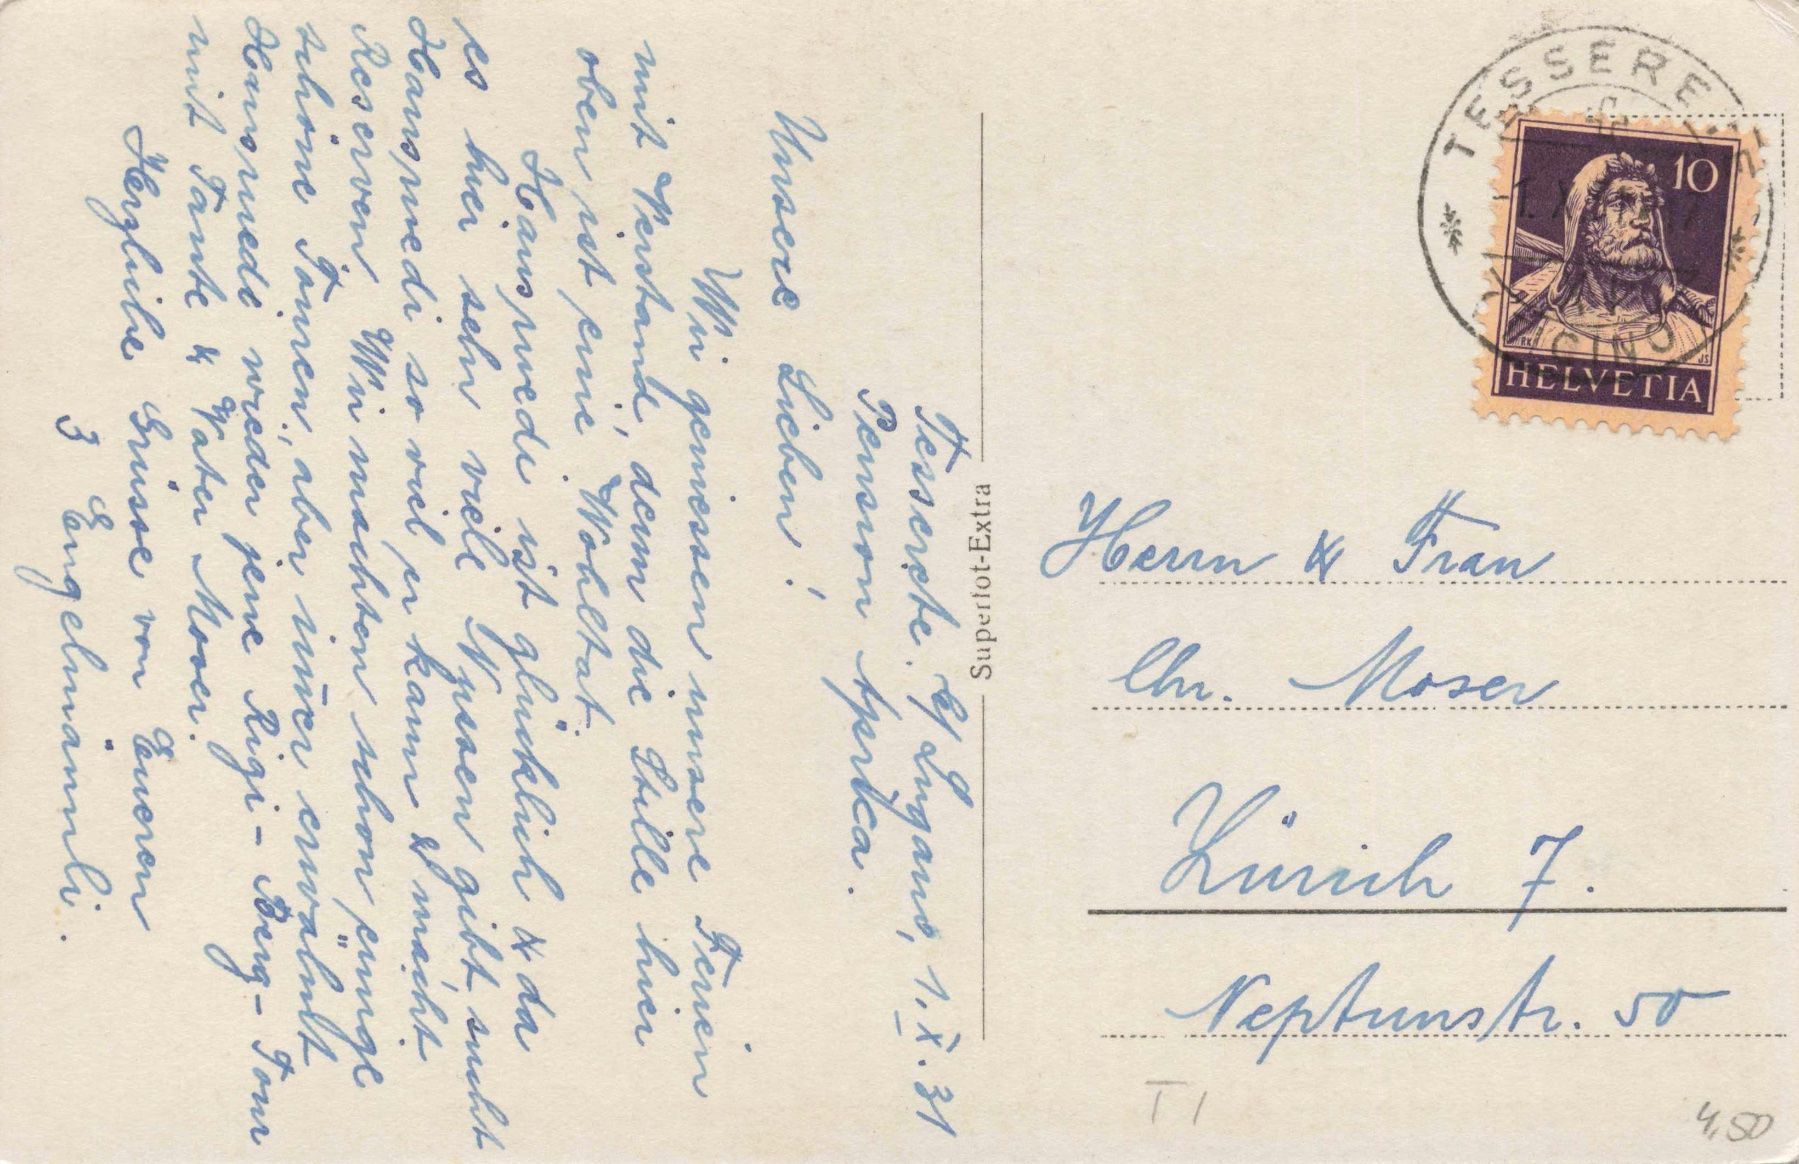 Tesserete b/ Lugano, 1. X. 31
Pension Aprica.
Unsere Lieben!
Wir geniessen unsere Ferien
mit Verstand, denn die Stille hier
oben ist eine Wohltat.
Hansruedi ist glücklich & da
es hier sehr viele Nüssen gibt sucht
Hansruedi so viel er kann & macht
Reserven. Wir machten schon einige
schöne Touren, aber immer erwähnt
Hansruedi wieder jene Rigi-Berg-Tour
mit Tante & Vater Moser.
Herzliche Grüsse von Eueren
3 Engelmännli.
Superlot-Extra
TESSERETE
1. X.
TICINO
10
RK JS
HELVETIA
Herrn & Frau
Chr. Moser
Zürich 7.
Neptunstr. 50
T1
4.50